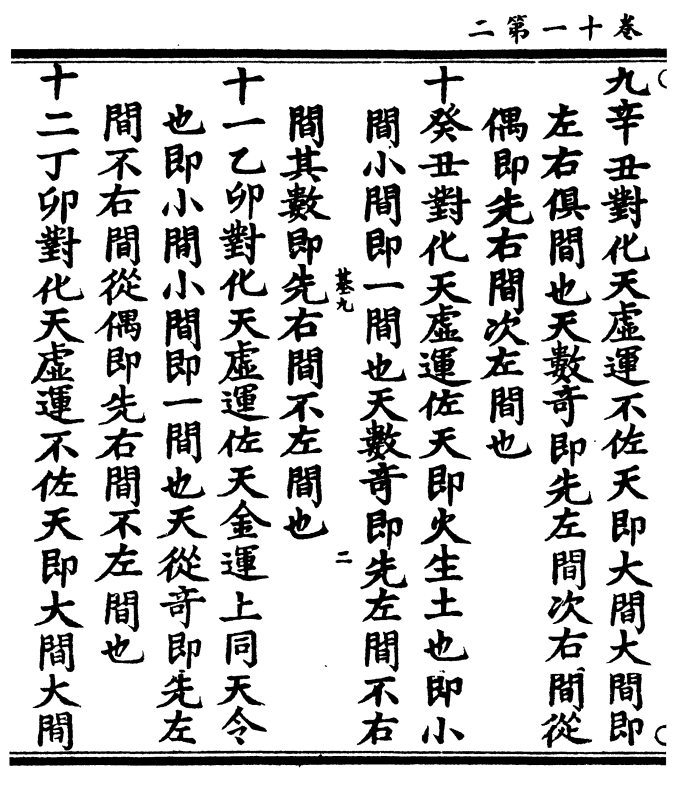 卷十一第二
九辛丑對化天虛運不佐天即大間大間即
左右俱間也天數奇即先左間次右間從
偶即先右間次左間也
十癸丑對化天虛運佐天即火生土也即小
間小間即一間也天數奇即先左間不右
基九
二
間其數即先右間不左間也
十一乙卯對化天虛運佐天金運上同天令
也即小間小間即一間也天從奇即先左
間不右間從偶即先右間不左間也
十二丁卯對化天虛運不佐天即大間大間